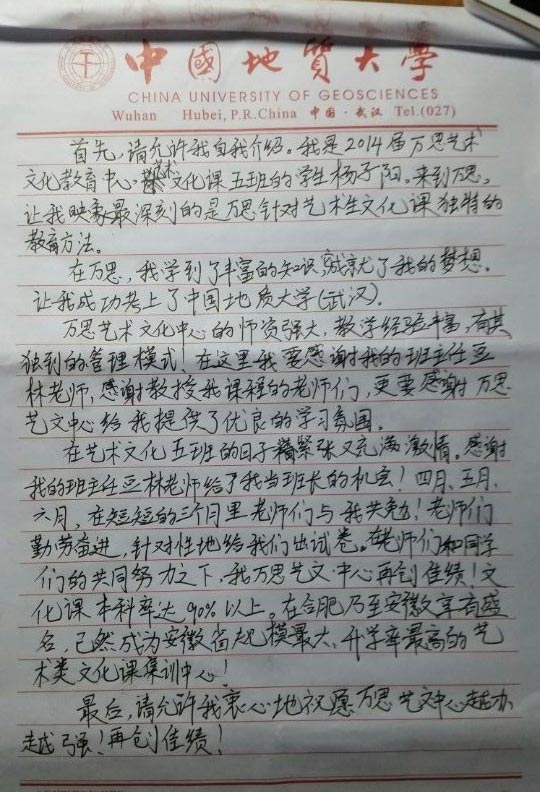 中國地質大學
CHINA UNIVERSITY OF GEOSCIENCES
Wuhan Hubei, P.R.China 中国·武汉 Tel.(027)
首先,请允许我自我介绍。我是2014届万思艺术
文化教育中心,艺术文化课五班的学生杨子阳。来到万思,
让我映象最深刻的是万思针对艺术生文化课独特的
教育方法。
在万思,我学到了丰富的知识,成就了我的梦想。
让我成功考上了中国地质大学(武汉)。
万思艺术文化中心的师资强大,教学经验丰富,有其
独到的管理模式,在这里我要感谢我的班主任豆
林老师,感谢教授我课程的老师们,更要感谢万思
艺文中心给我提供了优良的学习氛围。
在艺术文化五班的日子精紧张又充满激情。感谢
我的班主任豆林老师给了我当班长的机会!四月、五月、
六月,在短短的三个月里老师们与我共勉!老师们
勤劳奋进,针对性地给我们出试卷。在老师们和同学
们的共同努力之下,我万思艺文中心再创佳绩!文
化课本科率达90%以上。在合肥乃至安徽享有盛
名,已然成为安徽省规模最大,升学率最高的艺
术类文化课集训中心!
最后,请允许我衷心地祝愿万思艺文中心越办
越强!再创佳绩!